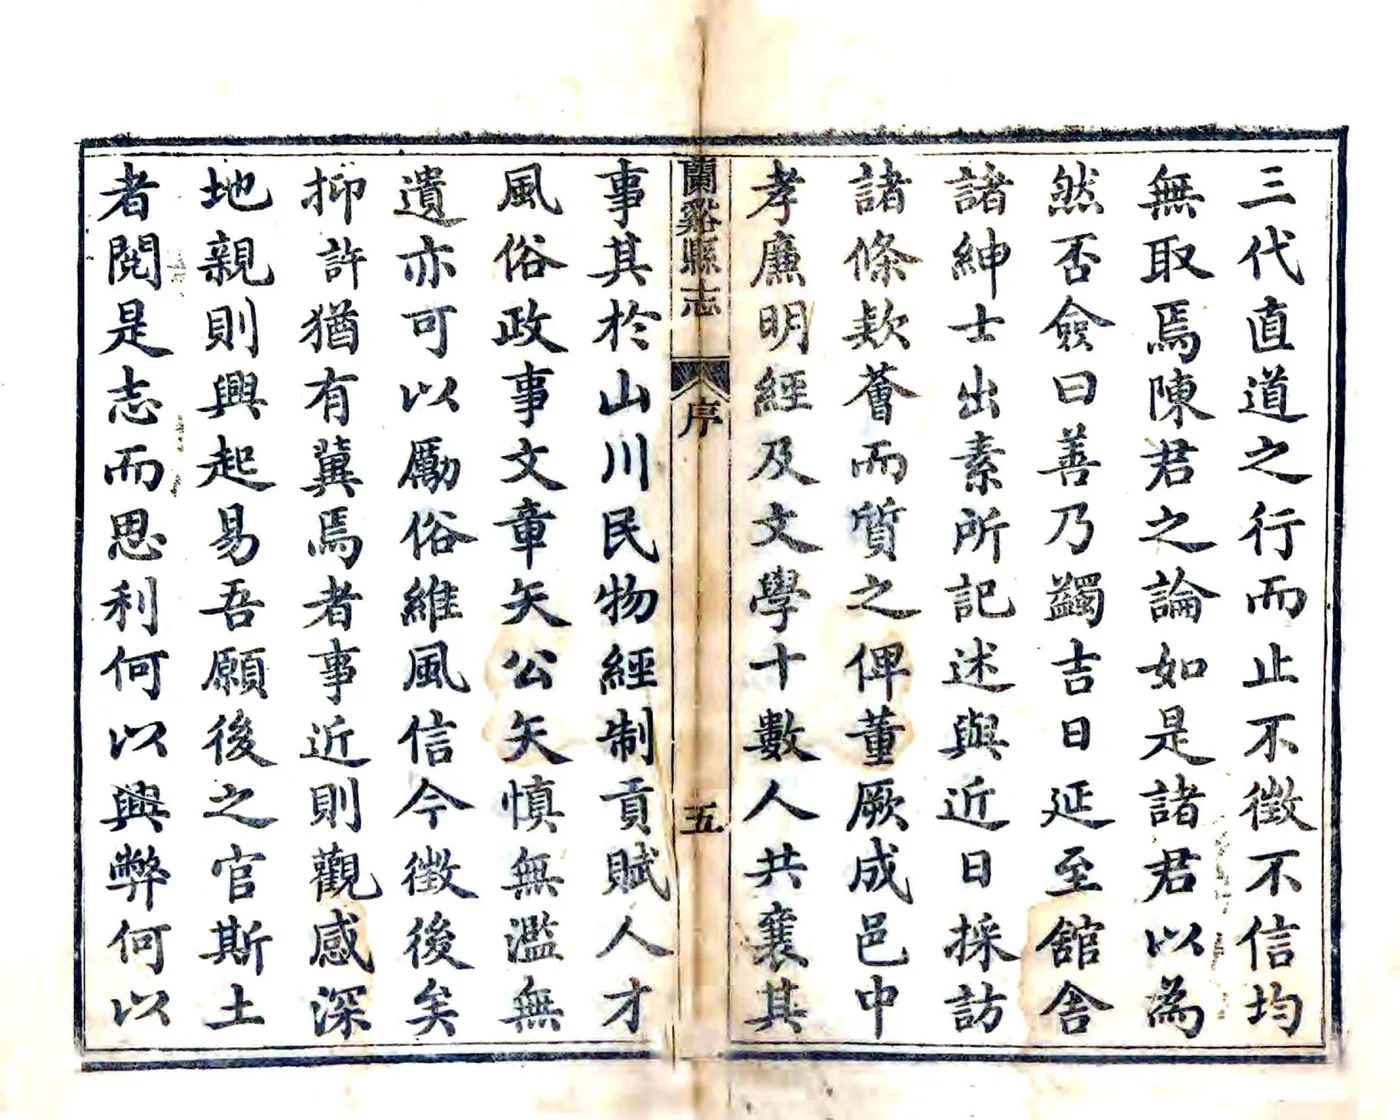 三代直道之行而止不徵不信均
無取焉陳君之論如是諸君以為
然否僉曰善乃蠲吉日延至館舍
諸紳士出素所記述與近日採訪
諸條欵薈而質之俾董厥成邑中
孝廉明經及文學十數人共襄其
蘭谿縣志 序 五
事其於山川民物經制貢賦人才
風俗政事文章矢公矢慎無濫無
遺亦可以勵俗維風信今徵後矣
抑許猶有冀焉者事近則觀感深
地親則興起易吾願後之官斯土
者閱是志而思利何以興弊何以